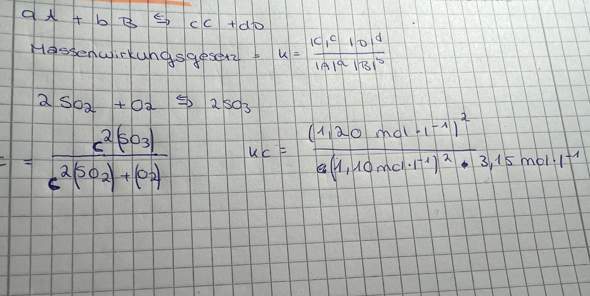 aA + bB ⇆ cC + dD
Massenwirkungsgesetz = K = |C|^c |D|^d / |A|^a |B|^b
2 SO2 + O2 ⇆ 2SO3
= c^2(SO3) / c^2(SO2) + (O2)
Kc = (1,20 mol·l^-1)^2 / (1,10 mol·l^-1)^2 · 3,15 mol·l^-1